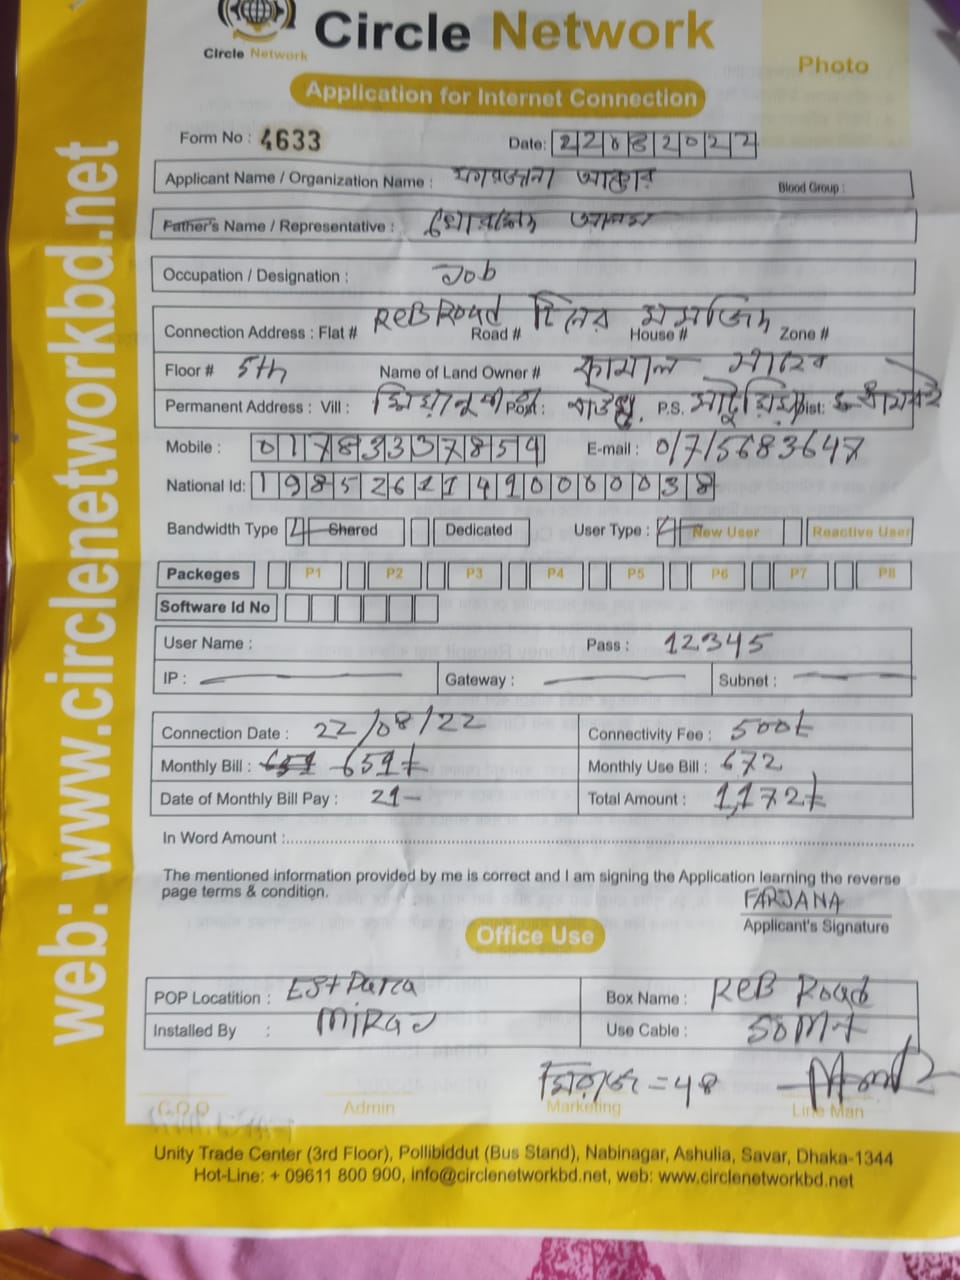 Circle Network
Circle Network
Photo
Application for Internet Connection
Form No : 4633
Date: 22082022
Applicant Name / Organization Name : ফারজানা আক্তার
Blood Group :
Father's Name / Representative : আলম
Occupation / Designation : Job
Connection Address : Flat # ReB Road টিনের মসজিদ Road # House # Zone #
Floor # 5th Name of Land Owner # কামাল সাহেব
Permanent Address : Vill : Post : P.S. Dist:
Mobile : 01783337854 E-mail : 01715683647
National Id: 19852611490000038
Bandwidth Type Shared Dedicated User Type : New User Reactive User
Packeges P1 P2 P3 P4 P5 P6 P7 P8
Software Id No
User Name : Pass : 12345
IP : Gateway : Subnet :
Connection Date : 22/08/22 Connectivity Fee : 500t
Monthly Bill : 651t Monthly Use Bill : 672
Date of Monthly Bill Pay : 21- Total Amount : 1,172t
In Word Amount :
The mentioned information provided by me is correct and I am signing the Application learning the reverse
page terms & condition.
FARJANA
Applicant's Signature
Office Use
POP Locatition : ESt Para Box Name : ReB Road
Installed By : MIRAJ Use Cable : 50Mt
মিরাজ = 48
C.O.O Admin Marketing Line Man
Unity Trade Center (3rd Floor), Pollibiddut (Bus Stand), Nabinagar, Ashulia, Savar, Dhaka-1344
Hot-Line: + 09611 800 900, info@circlenetworkbd.net, web: www.circlenetworkbd.net
web: www.circlenetworkbd.net